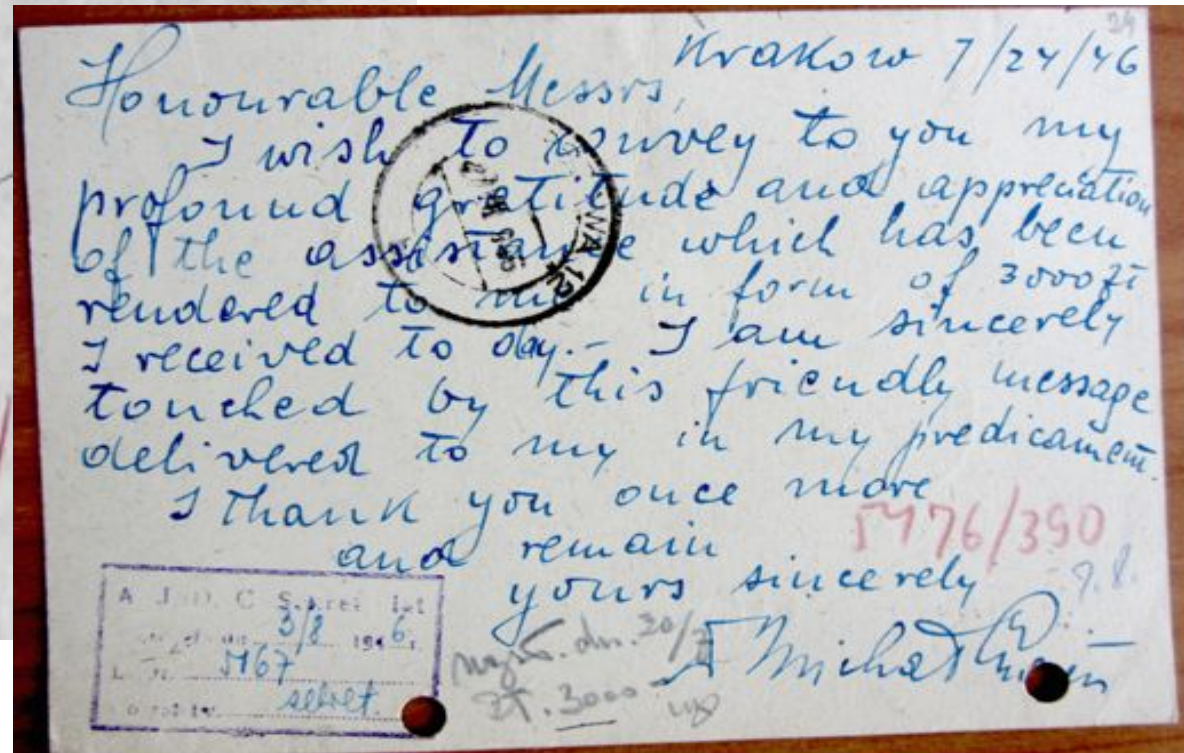 24
Krakow 7/24/46
Honourable Messrs,
I wish to convey to you my
profound gratitude and appreciation
of the assistance which has been
rendered to me in form of 3000 zł
I received to day.- I am sincerely
touched by this friendly message
delivered to my in my predicament.
I thank you once more
and remain
yours sincerely
5176/390
9.8.
Michał
A. J. D. C. Sekret
3/8 1946 r.
5167
sekret.
dn. 30/7
zł. 3000
WA 12